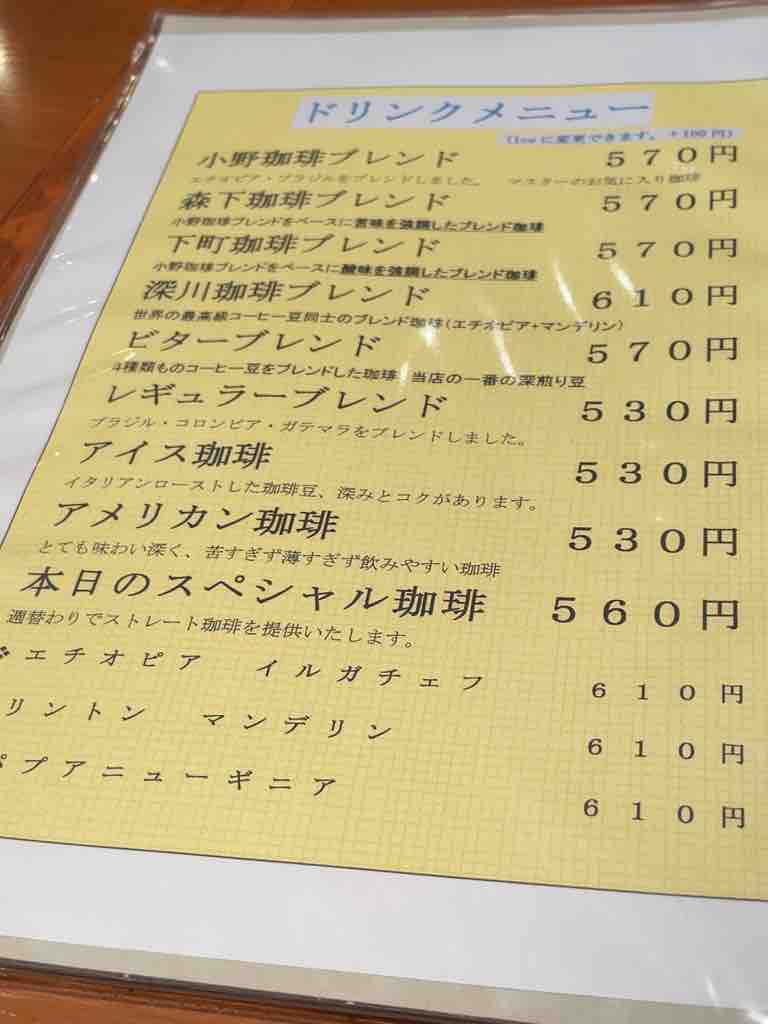 ドリンクメニュー
(Iceに変更できます。+100円)
小野珈琲ブレンド ５７０円
エチオピア・ブラジルをブレンドしました。 マスターのお気に入り珈琲
森下珈琲ブレンド ５７０円
小野珈琲ブレンドをベースに苦味を強調したブレンド珈琲
下町珈琲ブレンド ５７０円
小野珈琲ブレンドをベースに酸味を強調したブレンド珈琲
深川珈琲ブレンド ６１０円
世界の最高級コーヒー豆同士のブレンド珈琲(エチオピア+マンデリン)
ビターブレンド ５７０円
4種類ものコーヒー豆をブレンドした珈琲 当店の一番の深煎り豆
レギュラーブレンド ５３０円
ブラジル・コロンビア・ガテマラをブレンドしました。
アイス珈琲 ５３０円
イタリアンローストした珈琲豆、深みとコクがあります。
アメリカン珈琲 ５３０円
とても味わい深く、苦すぎず薄すぎず飲みやすい珈琲
本日のスペシャル珈琲 ５６０円
週替わりでストレート珈琲を提供いたします。
エチオピア イルガチェフ ６１０円
リントン マンデリン ６１０円
パプアニューギニア ６１０円